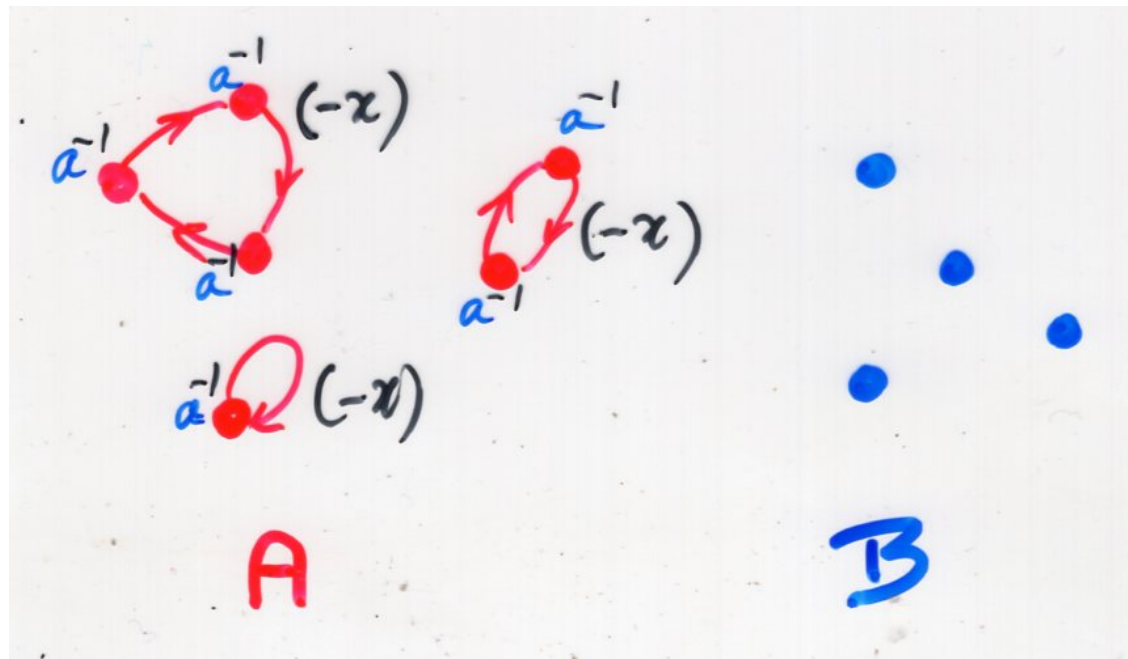 a⁻¹ (-x)
a⁻¹ a⁻¹
(-x)
a⁻¹ a⁻¹
a⁻¹ (-x)
A B